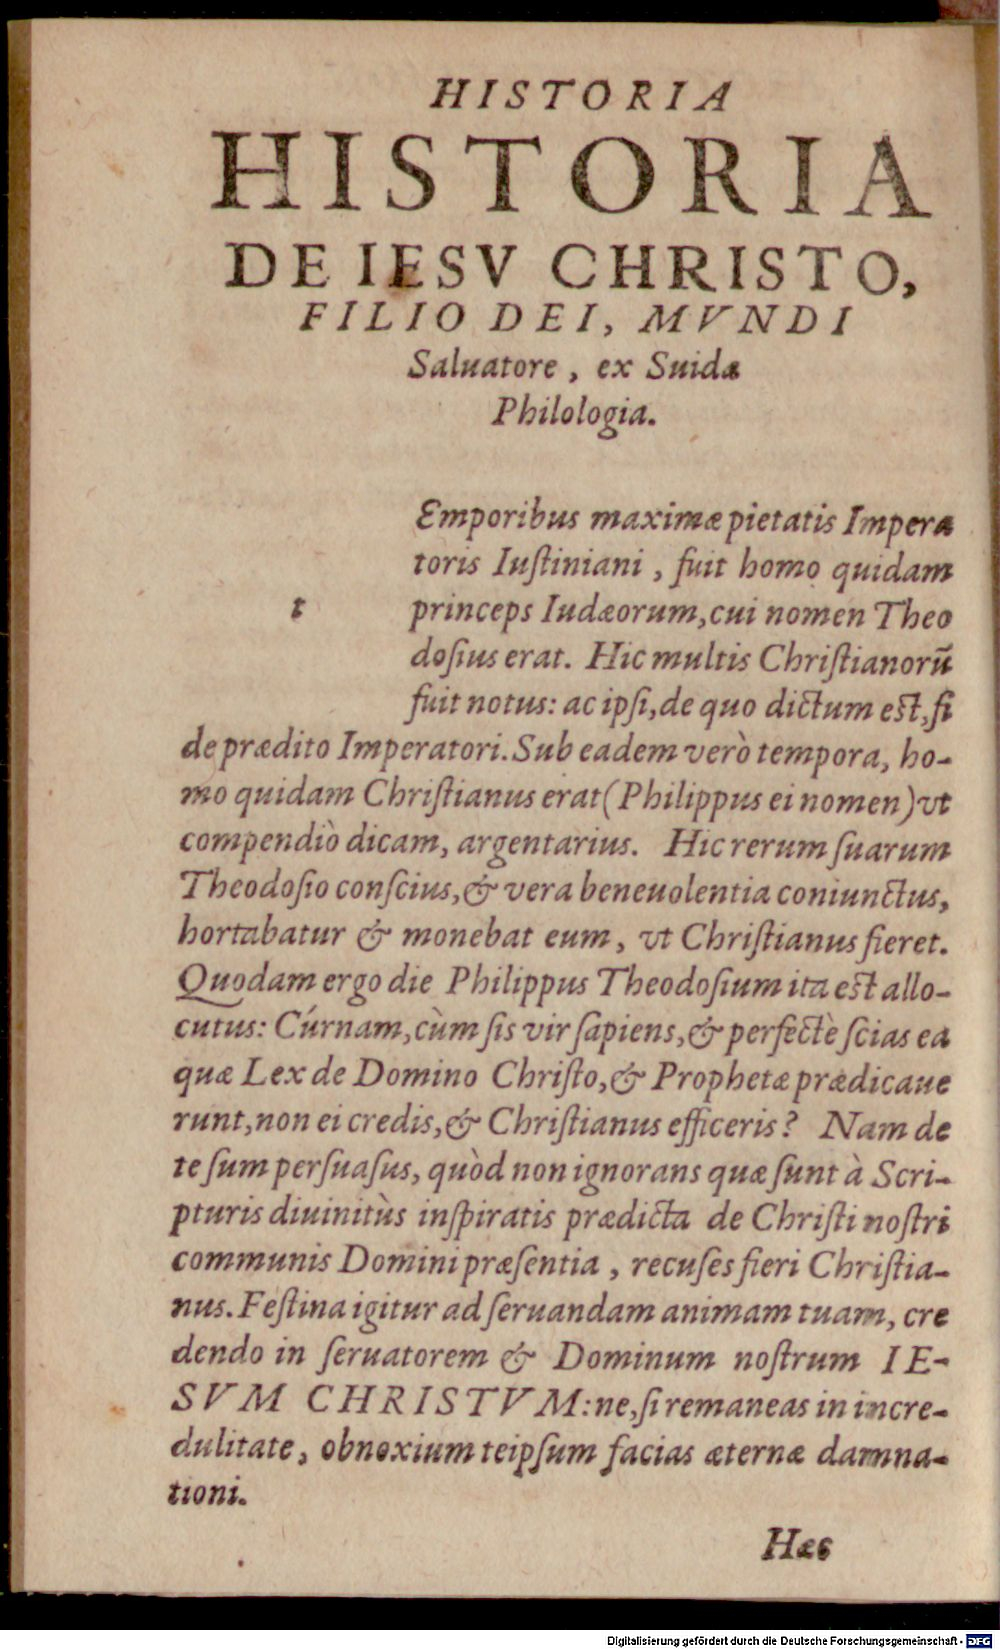 HISTORIA
HISTORIA
DE IESV CHRISTO,
FILIO DEI, MVNDI
Saluatore, ex Suidæ
Philologia.
Emporibus maximæ pietatis Impera
toris Iuſtiniani, fuit homo quidam
t
princeps Iudæorum, cui nomen Theo
doſius erat. Hic multis Chriſtianorū
fuit notus: ac ipſi, de quo dictum eſt, fi
de prædito Imperatori. Sub eadem verò tempora, ho-
mo quidam Chriſtianus erat (Philippus ei nomen) vt
compendiò dicam, argentarius. Hic rerum ſuarum
Theodoſio conſcius, & vera beneuolentia coniunctus,
hortabatur & monebat eum, vt Chriſtianus fieret.
Quodam ergo die Philippus Theodoſium ita eſt allo-
cutus: Cúrnam, cùm ſis vir ſapiens, & perfectè ſcias ea
quæ Lex de Domino Chriſto, & Prophetæ prædicaue
runt, non ei credis, & Chriſtianus efficeris? Nam de
te ſum perſuaſus, quòd non ignorans quæ ſunt à Scri-
pturis diuinitùs inſpiratis prædicta de Chriſti noſtri
communis Domini præſentia, recuſes fieri Chriſtia-
nus. Feſtina igitur ad ſeruandam animam tuam, cre
dendo in ſeruatorem & Dominum noſtrum IE-
SVM CHRISTVM: ne, ſi remaneas in incre-
dulitate, obnoxium teipſum facias æternæ damna-
tioni.
Hæc
Digitalisierung gefördert durch die Deutsche Forschungsgemeinschaft - DFG